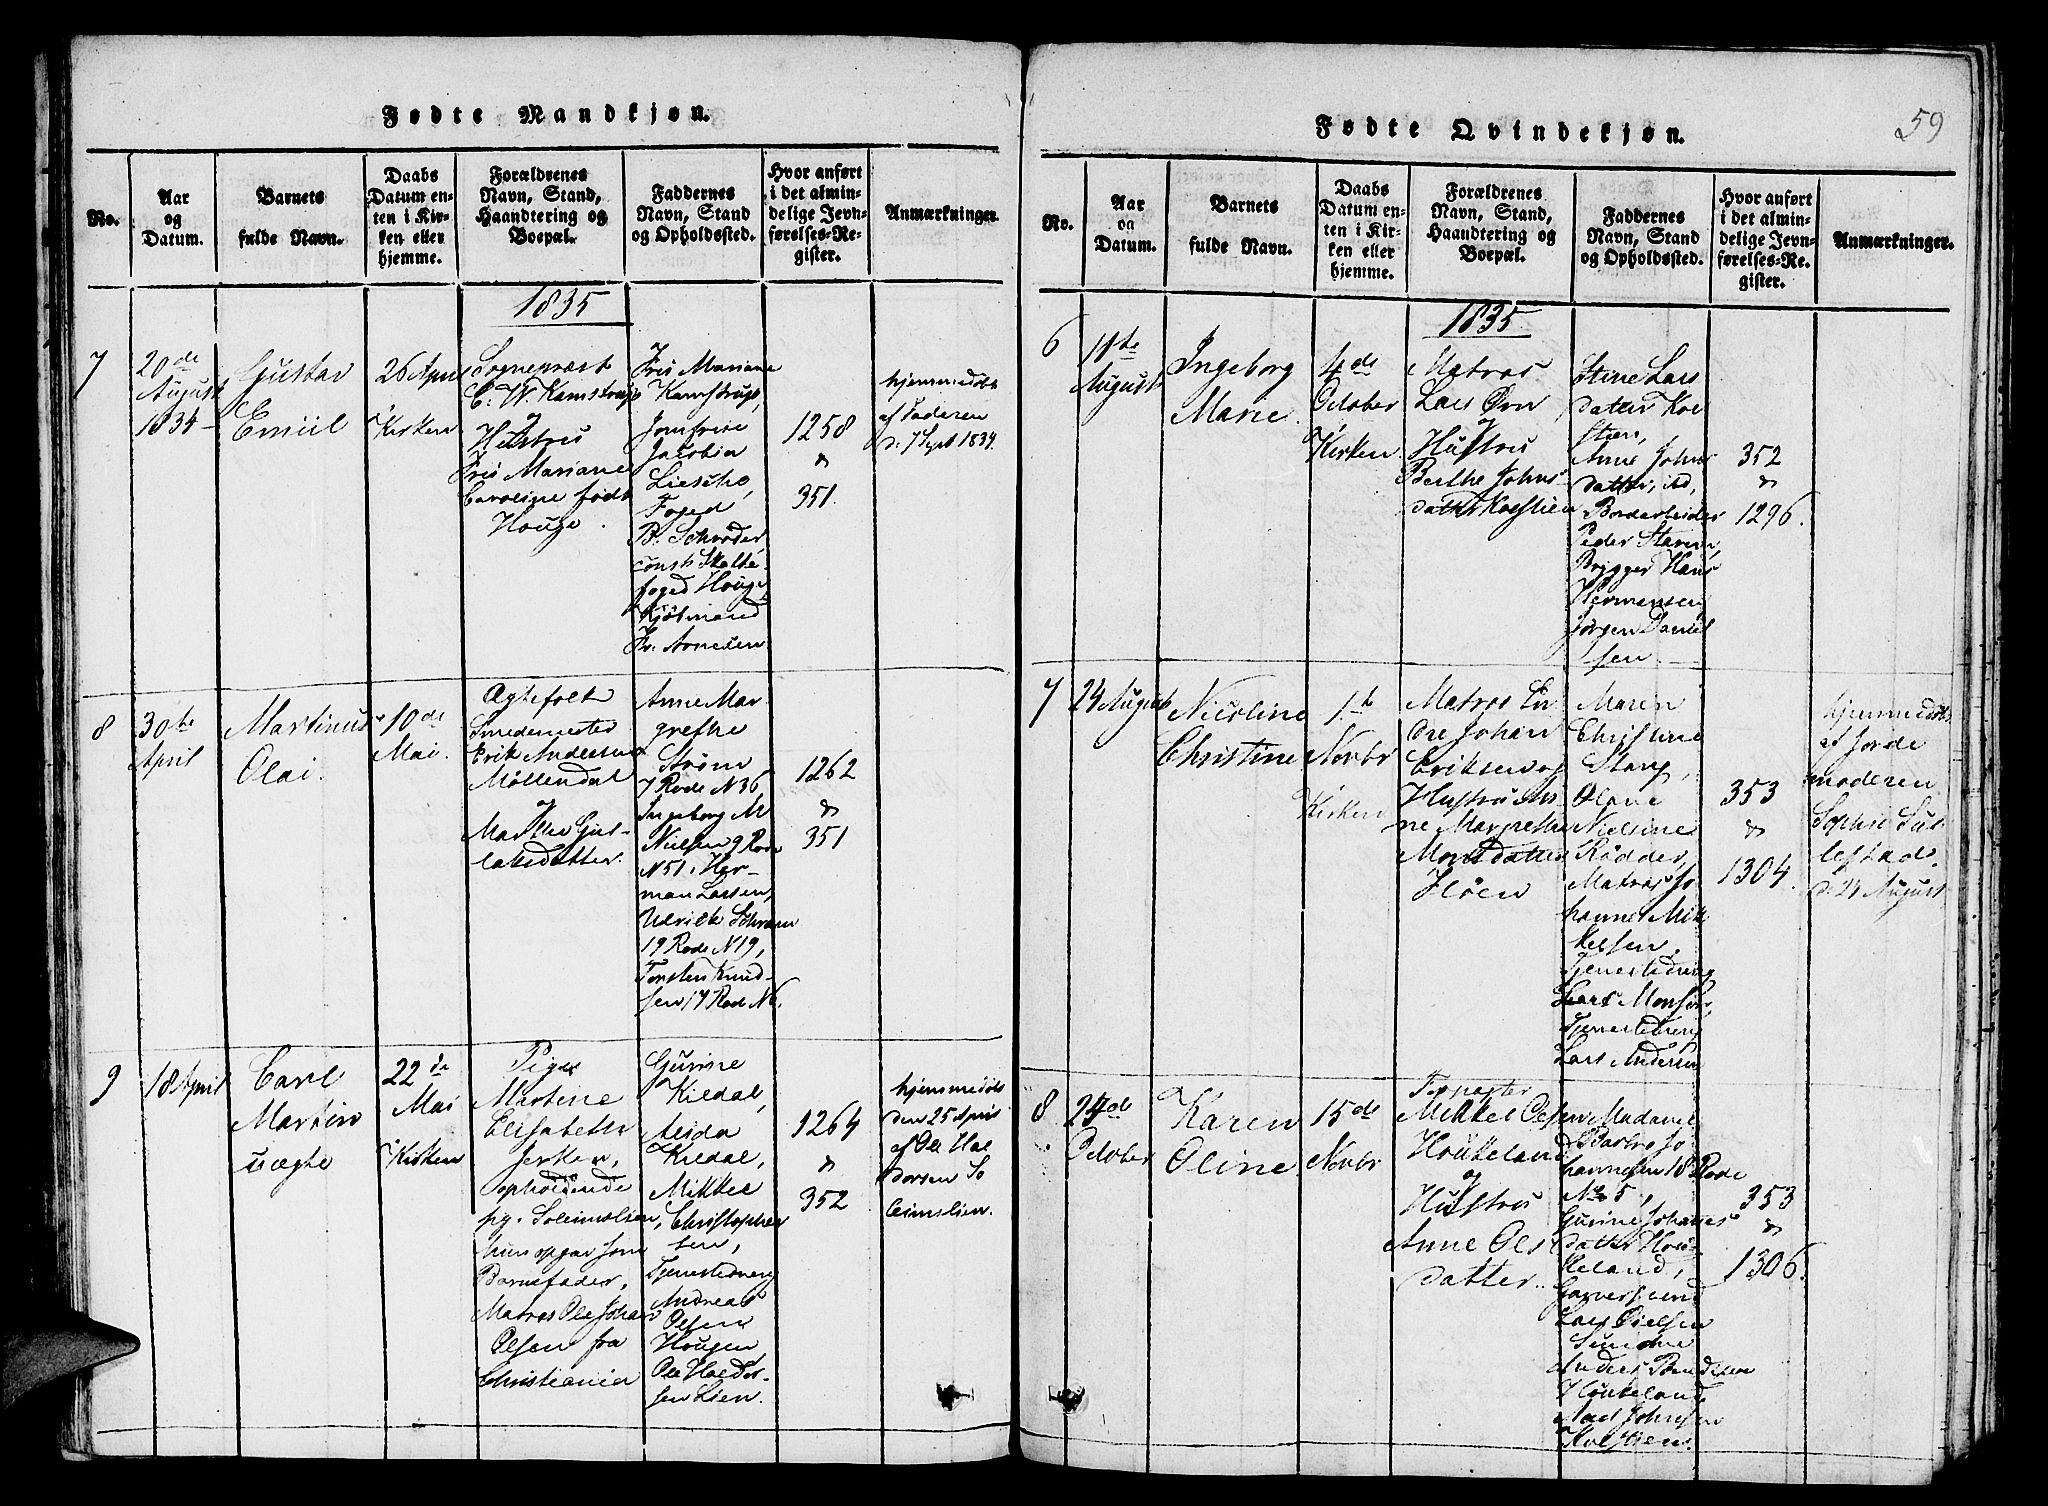 Fødte Mandkjøn.
No.
Aar
og
Datum.
Barnets
fulde Navn.
Daabs
Datum en-
ten i Kir-
ken eller
hjemme.
Forældrenes
Navn, Stand,
Haandtering og
Boepæl.
Faddernes
Navn, Stand
og Opholdssted.
Hvor anført
i det almin-
delige Jevn-
førelses-Re-
gister.
Anmærkninger.
1835
7
20de
August
1834
Gustav
Emiil
26 April
i Kirken
Sognepræst
C. W. Kamstrup
og
Hustru
Fru Mariane
Caroline født
Houge.
Fru Mariane
Kamstrup,
Jomfrue
Jacobia
Foged
B. Schrøder,
const. Skatte-
foged Houge,
Kjöbmand
Fr. Arnesen
1258
&
351.
hjemmedøbt
af Faderen
d: 7 Sept 1834.
8
30te
April
Martinus
Olai.
10de
Mai.
Ægtefolk
Smedemester
Erik Andersen
Möllendal
og
Marthe Gut-
laksdatter.
Anne Mar
grethe
Strøm
7 Rode N 36,
Ingeborg M
Nielsen 9 Rode
N 51, Her-
man Larsen,
Udrick
19 Rode N 19,
Torsten Knud-
sen 17 Rode N 6.
1262
&
351
9
18 April
Carl
Martin
uægte
22de
Mai
i Kirken
Pige
Martine
Elisabeth
opholdende
hun opgav som
Barnefader,
Matros Ole Johan
Olsen fra
Christiania
Gurine
Kildal,
Kildal,
Mikkel
Christopher
sen,
Tjenestedreng
Andreas
Olsen
Hougen,
Ole Haldor-
sen Lien.
1264
&
352
hjemmedøbt
den 25 April
af Ole Hal
dorsen So
leimslien.
59
Fødte Qvindekjøn.
No.
Aar
og
Datum.
Barnets
fulde Navn.
Daabs
Datum en-
ten i Kir-
ken eller
hjemme.
Forældrenes
Navn, Stand,
Haandtering og
Boepæl.
Faddernes
Navn, Stand
og Opholdssted.
Hvor anført
i det almin-
delige Jevn-
førelses-Re-
gister.
Anmærkninger.
1835
6
11te
August
Ingeborg
Marie.
4de
October
i Kirken.
Matros
Lars Ørn
og
Hustru
Berthe Johns-
datter
Stine Lars
datter
Anne Johns
datter, ibd,
Bordarbeider
Peder
Brygger Hans
Hermansen
Jørgen Daniel
sen.
352
&
1296.
7
24 August
Nicoline
Christine
1te
Novbr
i Kirken
Matros
Johan
Eriksen og
Hustru
Margrethe
Monsdatter
Høen
Maren
Christine
Stang,
Oline
Nielsine
Rødder,
Matros Jo
hannes Mik
kelsen,
Tjenestedreng
Lars Monsen,
Tjenestedreng
Lars Andersen
353
&
1304.
hjemmedøbt
af Jorde
moderen
Sophie Sul
lestad.
d: 24 August
8
24de
October
Karen
Oline
15de
Novbr
Mikkel Olsen
Houkeland
og
Hustru
Anne Ols
datter.
Madame
Barbro Jo
hannesen 18 Rode
No 5,
Gurine Johannes
datter Hou-
keland,
Garversvend
Lars
Anders
Houkeland
353
&
1306.